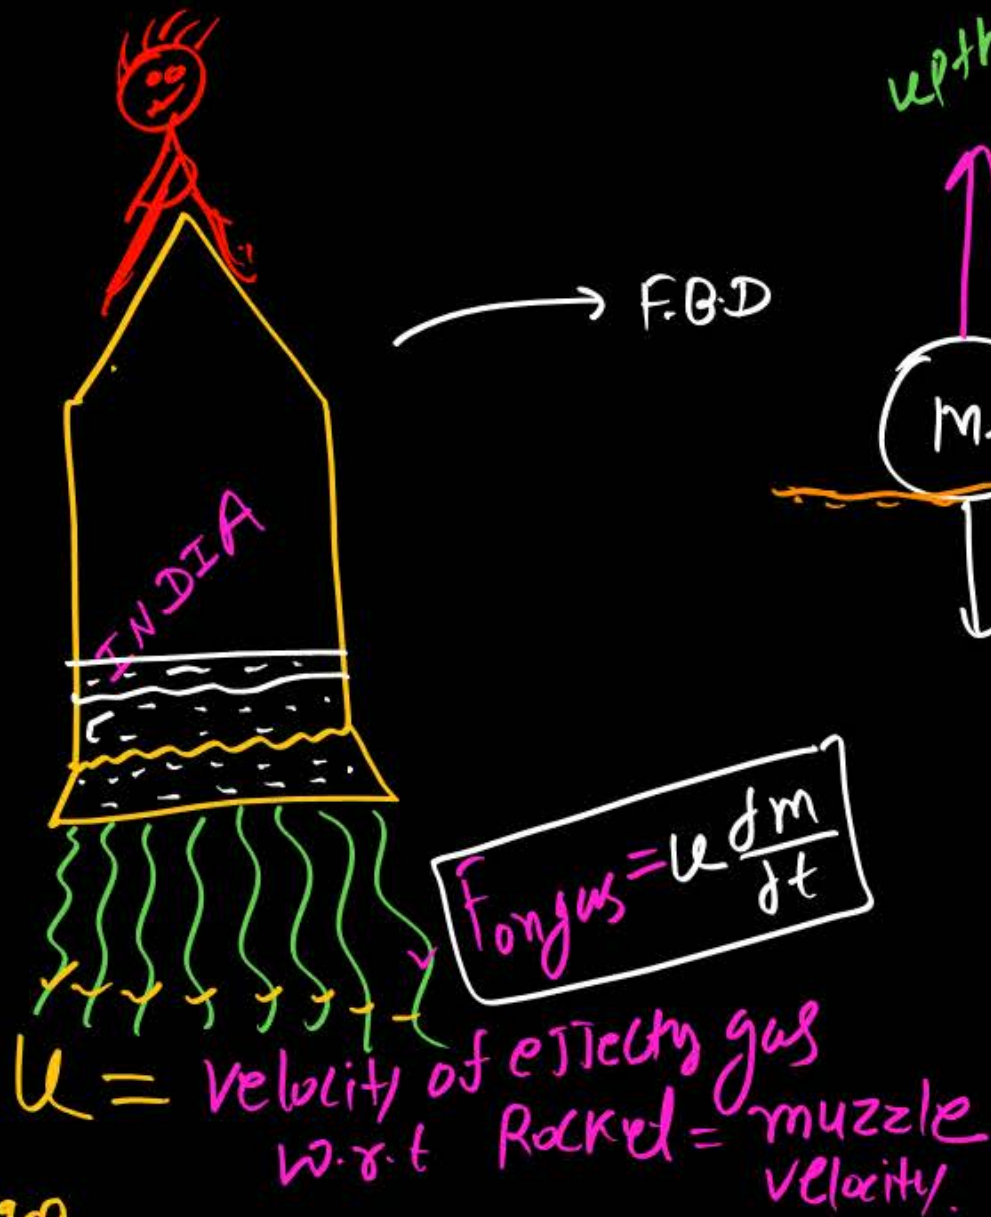 upth
F.B.D
M
INDIA
F on gas = u dm/dt
u = velocity of ejecty gas
w.r.t Rocket = muzzle
velocity.